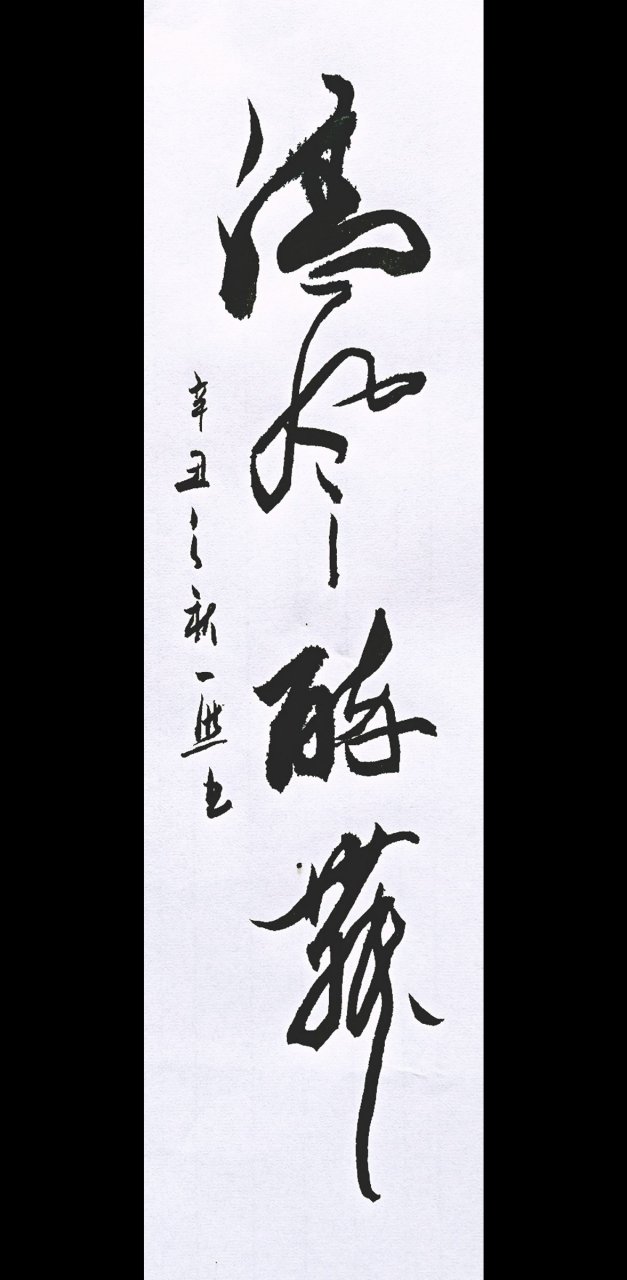 清风醉舞
辛丑之 一 书